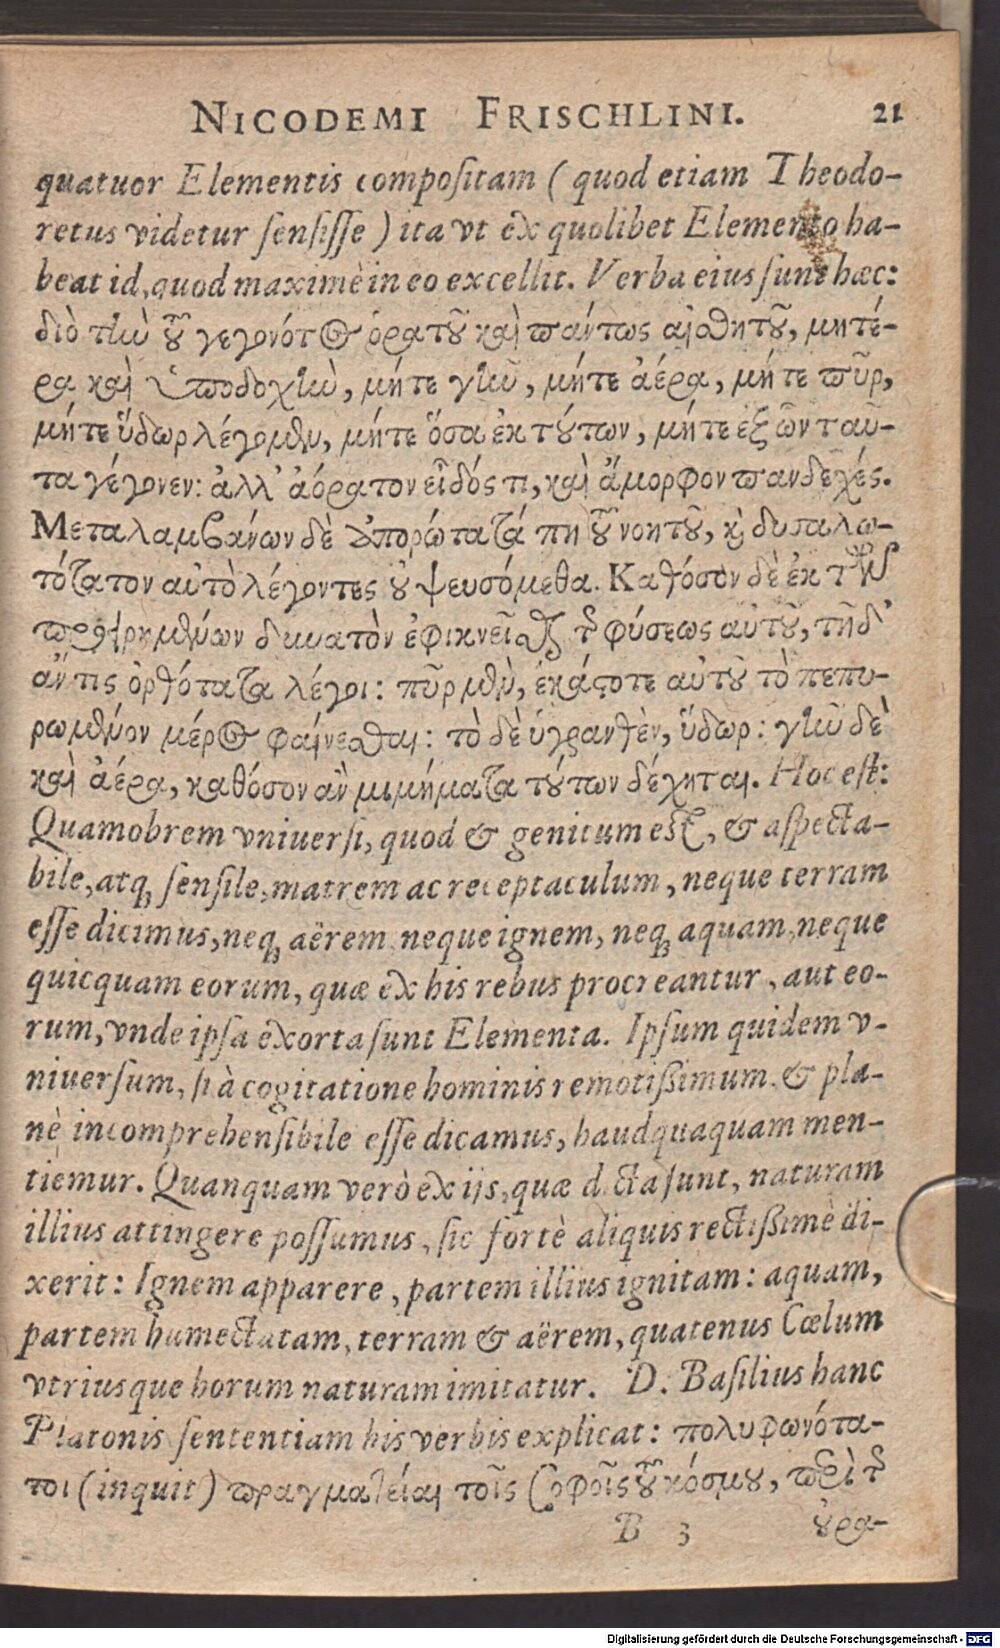 NICODEMI FRISCHLINI. 21
quatuor Elementis compoſitam (quod etiam Theodo-
retus videtur ſenſiſſe) ita vt ex quolibet Elemento ha-
beat id, quod maximè in eo excellit. Verba eius ſunt hæc:
διὸ τὴν τοῦ γεγονότος ὁρατοῦ καὶ πάντως αἰσθητοῦ, μητέ-
ρα καὶ ὑποδοχὴν, μήτε γῆν, μήτε ἀέρα, μήτε πῦρ,
μήτε ὕδωρ λέγομεν, μήτε ὅσα ἐκ τούτων, μήτε ἐξ ὧν ταῦ-
τα γέγονεν: ἀλλ' ἀόρατον εἶδός τι, καὶ ἄμορφον πανδεχές.
Μεταλαμβάνων δὲ ἀπορώτατά πη τοῦ νοητοῦ, καὶ δυσαλω-
τότατον αὐτὸ λέγοντες οὐ ψευσόμεθα. Καθόσον δὲ ἐκ τῶν
προειρημένων δυνατὸν ἐφικνεῖσθαι τῆς φύσεως αὐτοῦ, τῇδ'
ἄν τις ὀρθότατα λέγοι: πῦρ μὲν, ἑκάστοτε αὐτοῦ τὸ πεπυ-
ρωμένον μέρος φαίνεσθαι: τὸ δὲ ὑγρανθὲν, ὕδωρ: γῆν δὲ
καὶ ἀέρα, καθόσον ἂν μιμήματα τούτων δέχηται. Hoc eſt:
Quamobrem vniuerſi, quod & genitum eſt, & aſpecta-
bile, atq; ſenſile, matrem ac receptaculum, neque terram
eſſe dicimus, neq; aërem neque ignem, neq; aquam, neque
quicquam eorum, quæ ex his rebus procreantur, aut eo-
rum, vnde ipſa exorta ſunt Elementa. Ipſum quidem v-
niuerſum, ſi à cogitatione hominis remotiſsimum & pla-
nè incomprehenſibile eſſe dicamus, haudquaquam men-
tiemur. Quanquam verò ex ijs, quæ dicta ſunt, naturam
illius attingere poſſumus, ſic fortè aliquis rectiſsimè di-
xerit: Ignem apparere, partem illius ignitam: aquam,
partem humectatam, terram & aërem, quatenus Cœlum
vtriusque horum naturam imitatur. D. Baſilius hanc
Platonis ſententiam his verbis explicat: πολυφωνότα-
τοι (inquit) πραγματείαι τοῖς σοφοῖς τοῦ κόσμου, περὶ τῆς
B 3 οὐρα-
Digitalisierung gefördert durch die Deutsche Forschungsgemeinschaft - DFG